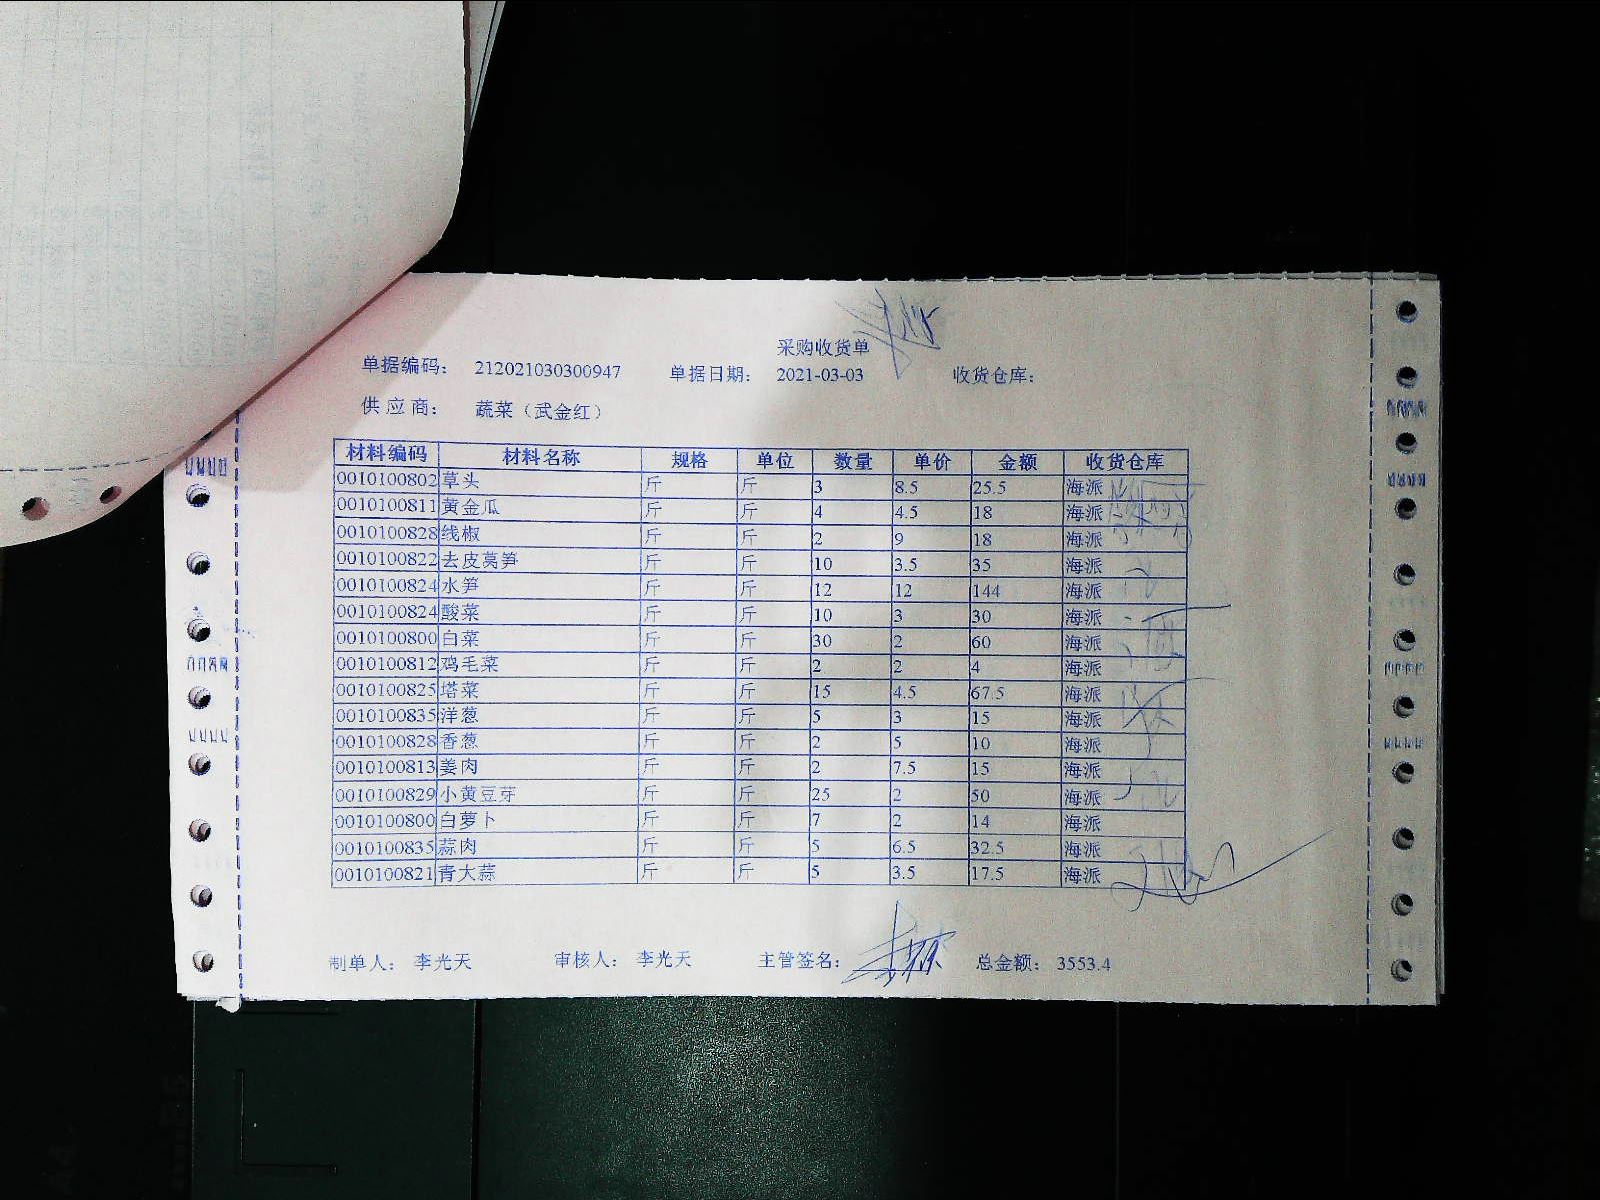 采购收货单
单据编码： 212021030300947 单据日期： 2021-03-03 收货仓库：
供 应 商： 蔬菜（武金红）
材料编码 材料名称 规格 单位 数量 单价 金额 收货仓库
0010100802 草头 斤 斤 3 8.5 25.5 海派
0010100811 黄金瓜 斤 斤 4 4.5 18 海派
0010100828 线椒 斤 斤 2 9 18 海派
0010100822 去皮莴笋 斤 斤 10 3.5 35 海派
0010100824 水笋 斤 斤 12 12 144 海派
0010100824 酸菜 斤 斤 10 3 30 海派
0010100800 白菜 斤 斤 30 2 60 海派
0010100812 鸡毛菜 斤 斤 2 2 4 海派
0010100825 塔菜 斤 斤 15 4.5 67.5 海派
0010100835 洋葱 斤 斤 5 3 15 海派
0010100828 香葱 斤 斤 2 5 10 海派
0010100813 姜肉 斤 斤 2 7.5 15 海派
0010100829 小黄豆芽 斤 斤 25 2 50 海派
0010100800 白萝卜 斤 斤 7 2 14 海派
0010100835 蒜肉 斤 斤 5 6.5 32.5 海派
0010100821 青大蒜 斤 斤 5 3.5 17.5 海派
制单人： 李光天 审核人： 李光天 主管签名： 总金额： 3553.4